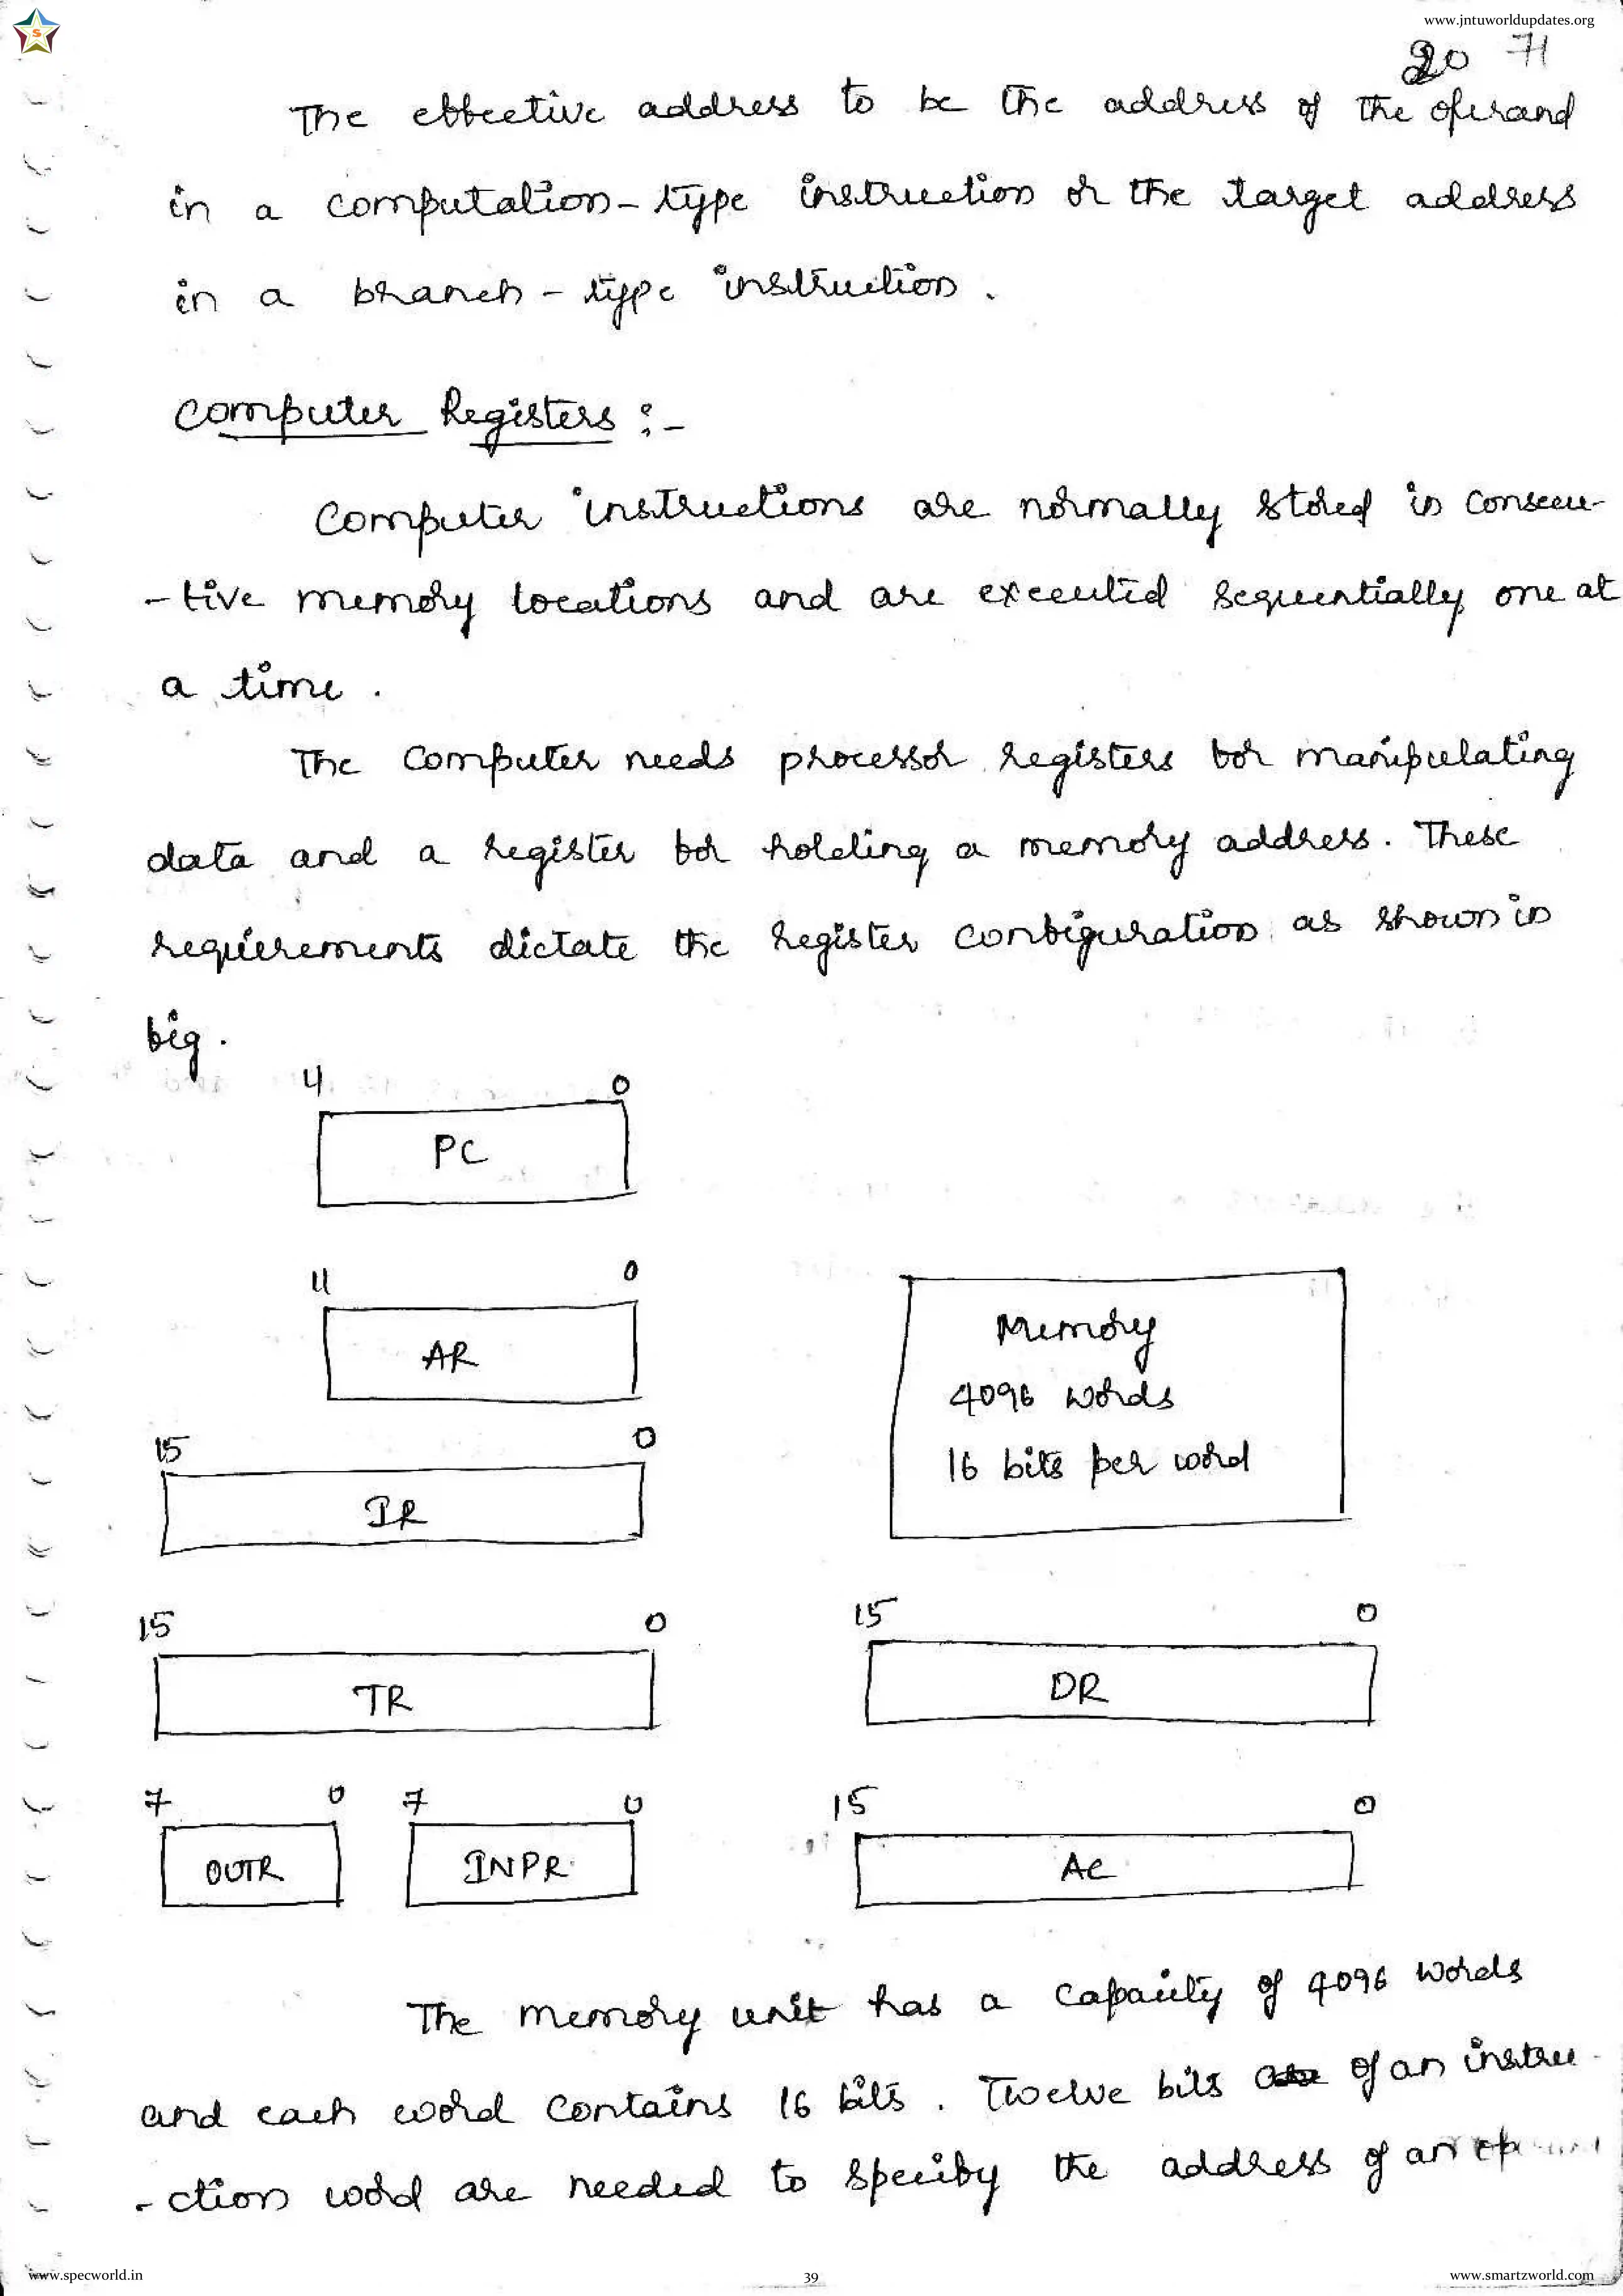 www.jntuworldupdates.org
20 71
The effective address to be the address of the operand
in a computation-type instruction or the target address
in a branch-type instruction.
Computer Registers :-
Computer instructions are normally stored in consecu-
-tive memory locations and are executed sequentially one at
a time.
The computer needs processor registers for manipulating
data and a register for holding a memory address. These
requirements dictate the register configuration as shown in
fig.
11 0
PC
11 0
AR
Memory
4096 words
16 bits per word
15 0
IR
15 0 15 0
TR DR
7 0 7 0 15 0
OUTR INPR AC
The memory unit has a capacity of 4096 words
and each word contains 16 bits. Twelve bits of an instru-
-ction word are needed to specify the address of an
www.specworld.in 39 www.smartzworld.com